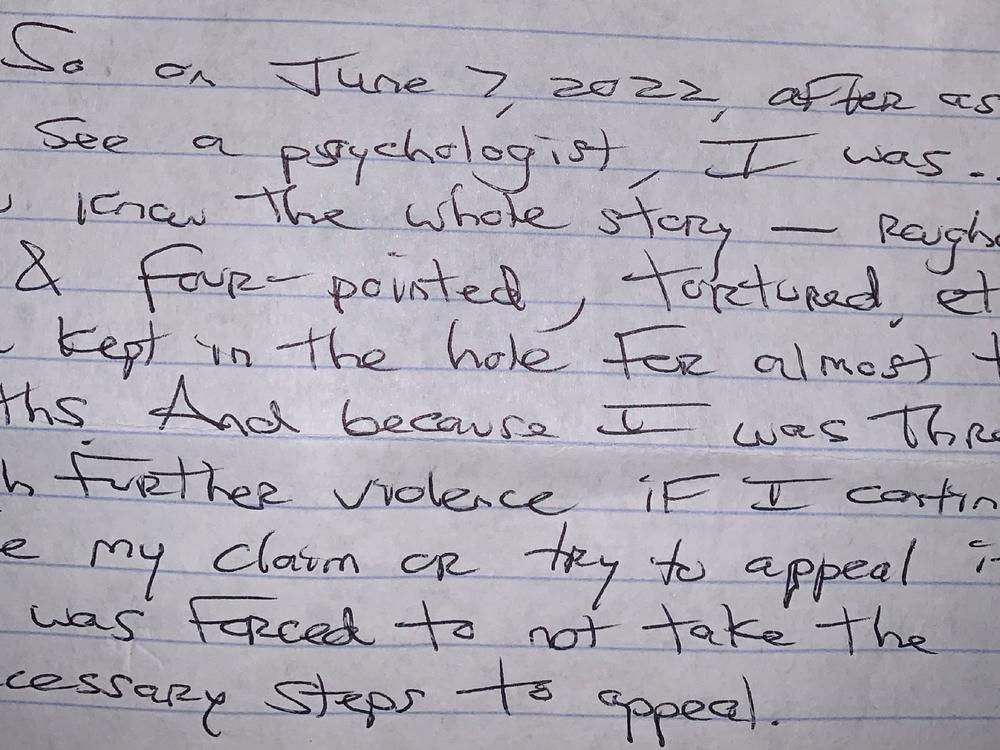 So on June 7, 2022, after as
see a psychologist, I was..
know the whole story — rough
& four-pointed, tortured, et
kept in the hole for almost t
ths. And because I was thre
h further violence if I contin
e my claim or try to appeal i
was forced to not take the
cessary steps to appeal.